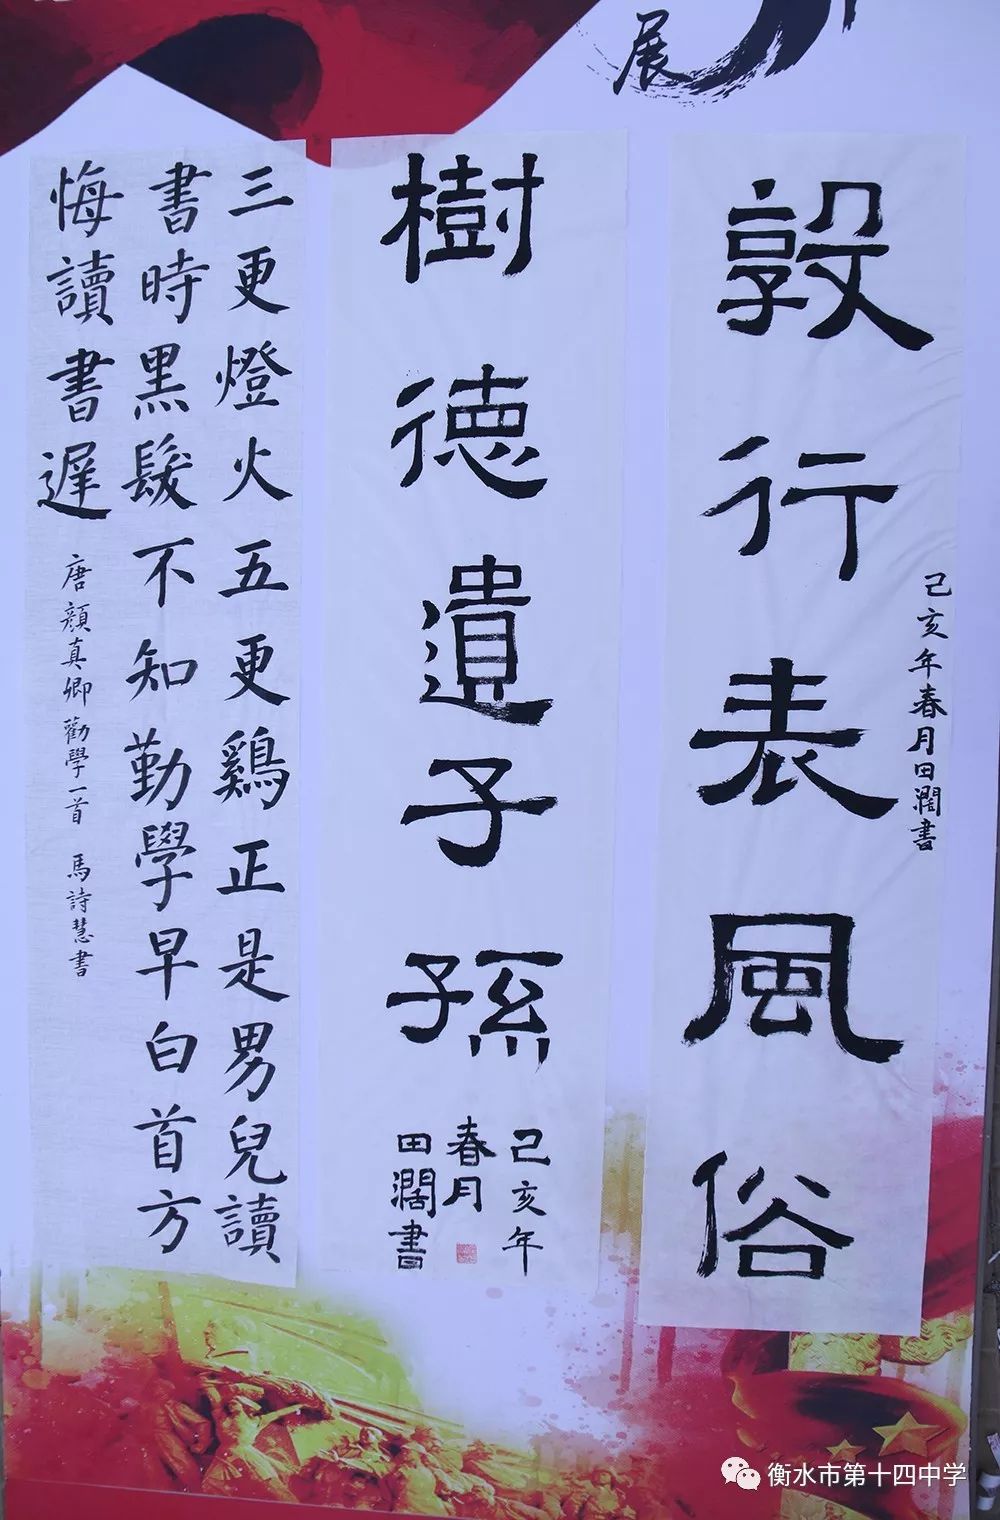 展
敦行表風俗
己亥年春月田濶書
樹德遺子孫
己亥年
春月
田濶書
三更燈火五更鷄正是男兒讀
書時黑髮不知勤學早白首方
悔讀書遲
唐顔真卿勸學一首 馬詩慧書
衡水市第十四中学